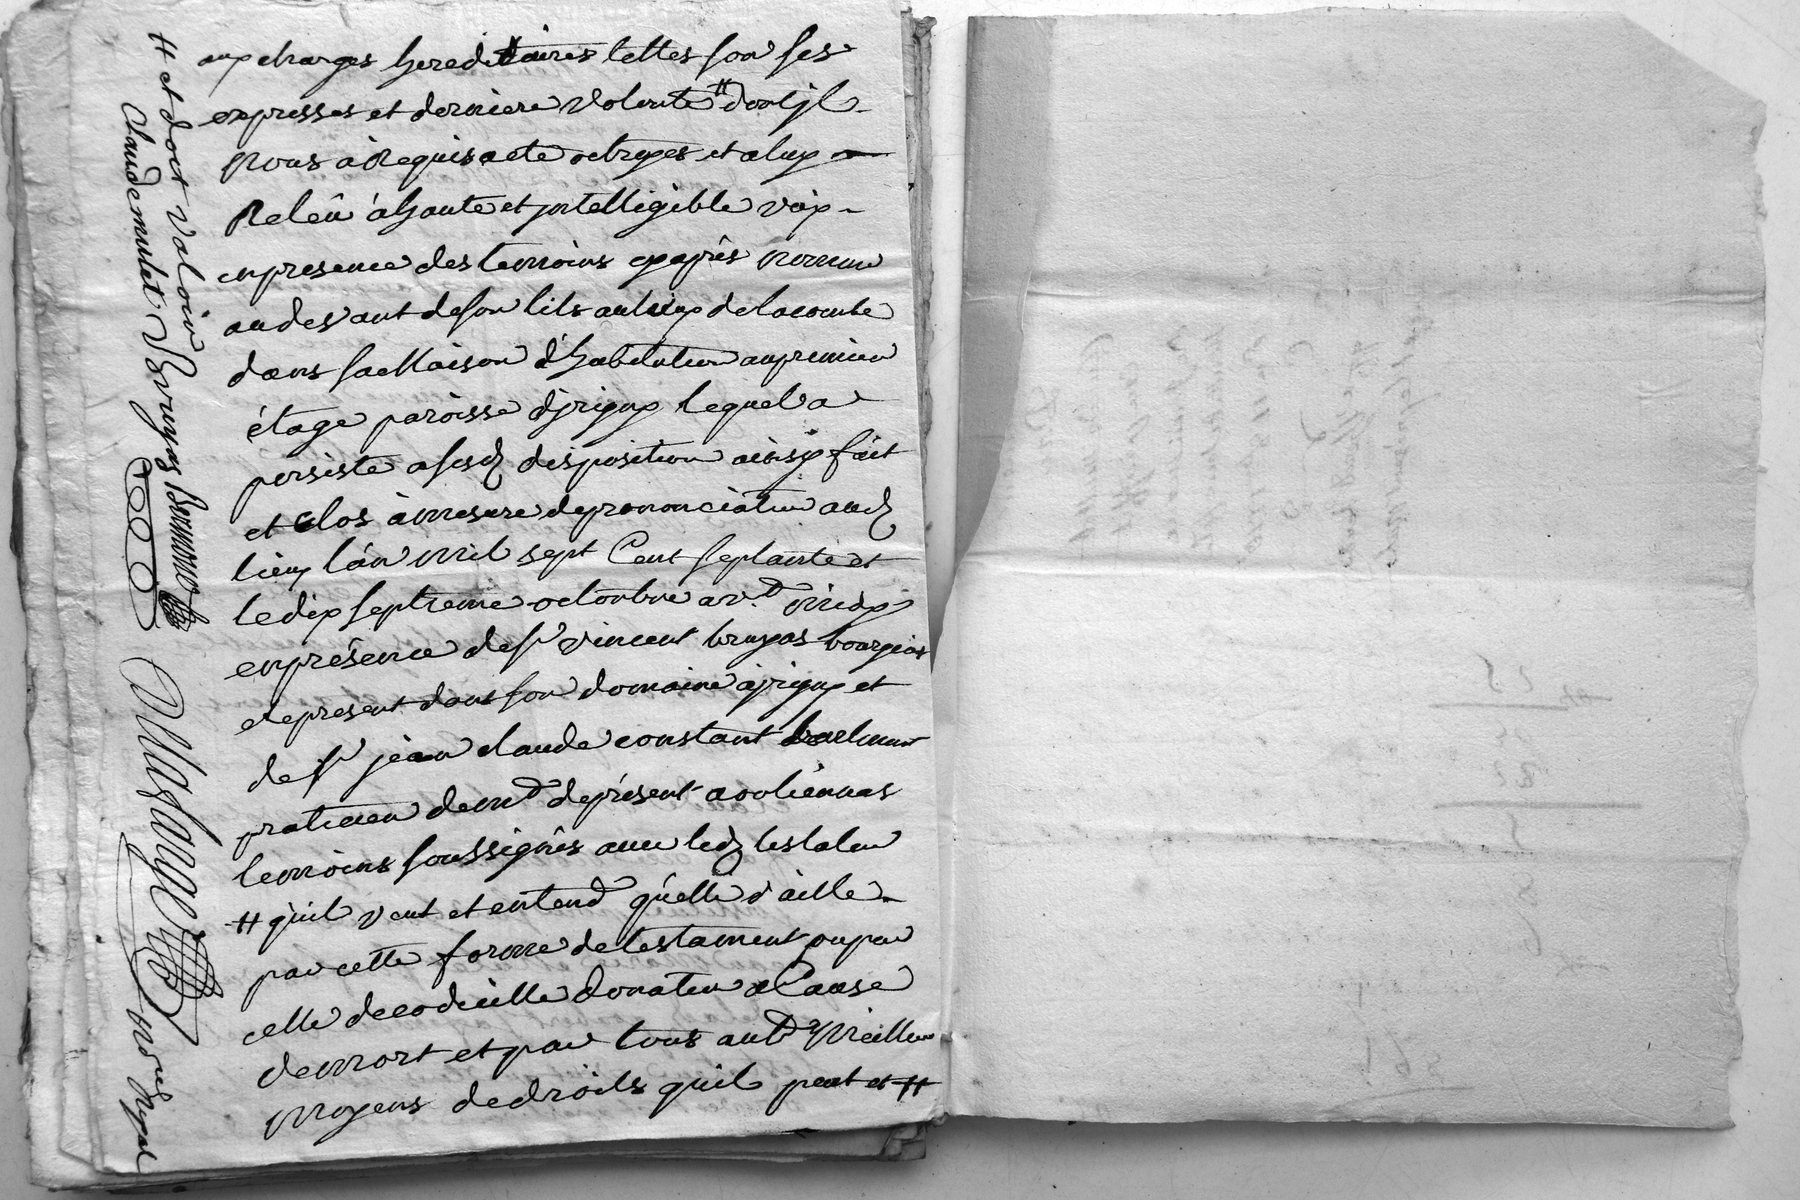 aux charges hereditaires telles son ses
expresses et derniere volonte # dont jl
nous à Requis acte octroyes et a luy
Releü à haute et jntelligible voix
en presence des temoins cy apres nommes
au devant de son lits au lieu de lacombe
dans sa Maison d'habitation au premier
étage paroisse d'jrigny lequel a
persiste a sesd disposition ainsy fait
et Clos à mesure de prononciation aud
lieu l'an mil sept Cent septante et
le dix septieme octoubre av.t midy
en présence de sr vincent bruyas bourgeois
de present dans son domaine a jrigny et
de sr jean claude constant
praticien de présent a orliennas
temoins soussignés avec led testateur
# qu'il veut et entend qu'elle vaille
par cette forme de testament ou par
celle de codicille donation a Cause
de mort et par tous autr Meilleur
moyens de droits qu'il peut et #
# et doit valoir
Claude mulet Bruyas
nore Royal